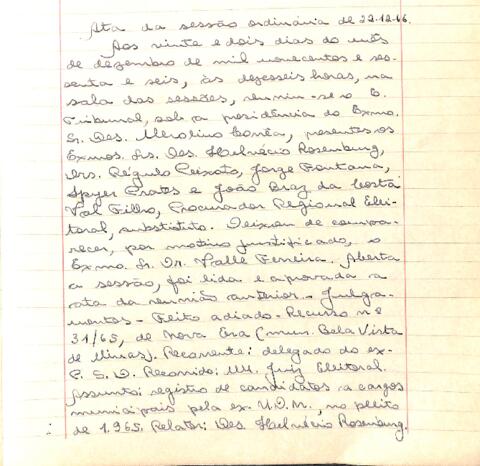 Ata da sessão ordinária de 22-12-66.
Aos vinte e dois dias do mês
de dezembro de mil novecentos e ses-
senta e seis, às dezesseis horas, na
sala das sessões, reuniu-se o E.
Tribunal, sob a presidência do Exmo.
Sr. Des. Merolino Corrêa, presentes os
Exmos. Srs. Des. Helvécio Rosenburg,
Drs. Régulo Peixoto, Jorge Fontana,
Spyer Prates e João Braz da Costa
Val Filho, Procurador Regional Elei-
toral, substituto. Deixou de compa-
recer, por motivo justificado, o
Exmo. Sr. Dr. Valle Ferreira. Aberta
a sessão, foi lida e aprovada a
ata da reunião anterior. - Julga-
mentos - Feito adiado - Recurso nº
31/65, de Nova Era (mun. Bela Vista
de Minas). Recorrente: delegado do ex-
P. S. D. Recorrido: MM. Juiz Eleitoral.
Assunto: registro de candidatos a cargos
municipais pela ex. U.D.N., no pleito
de 1.965. Relator: Des. Helvécio Rosenburg.